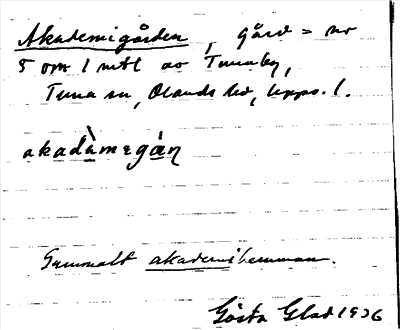 Akademigården, gård = nr
5 om 1 mtl av Tunaby,
Tuna sn, Olands hd, Upps. l.
akadàmegàn
Gammalt akademihemman.
Gösta Glad 1936